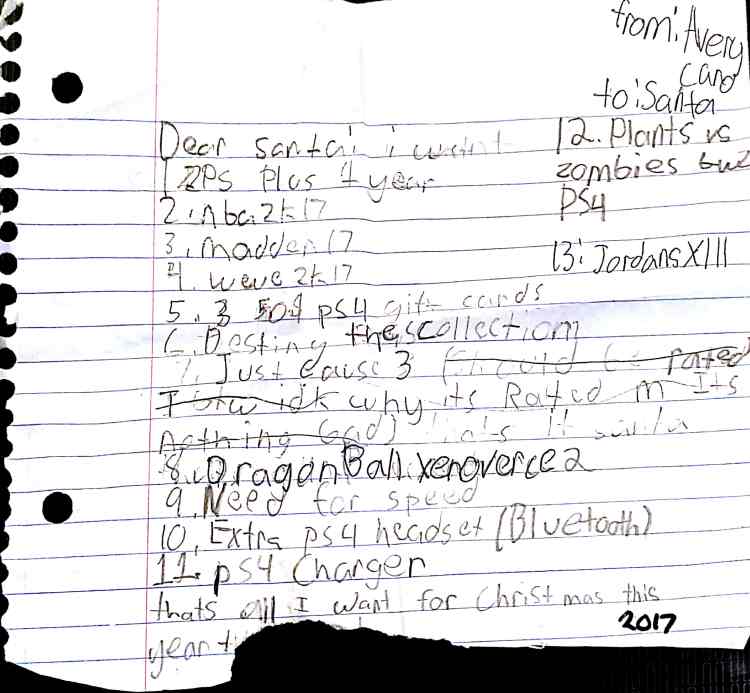 from: Avery
Card
to: Santa
Dear santa: i want
1 PS Plus 1 year
2. nba. 2k17
3. madden 17
4. wwe 2k17
5. 3 50$ ps4 gift cards
6. Destiny the collection
7. Just Cause 3 (should be rated
T idk why its Rated m Its
Nothing bad) thats it santa
8. Dragon Ball xenoverce 2
9. Need for speed
10. Extra ps4 headset (Bluetooth)
11. ps4 Charger
thats all I want for Christmas this
year
2017
12. Plants vs
zombies gw2
PS4
13: Jordans XIII